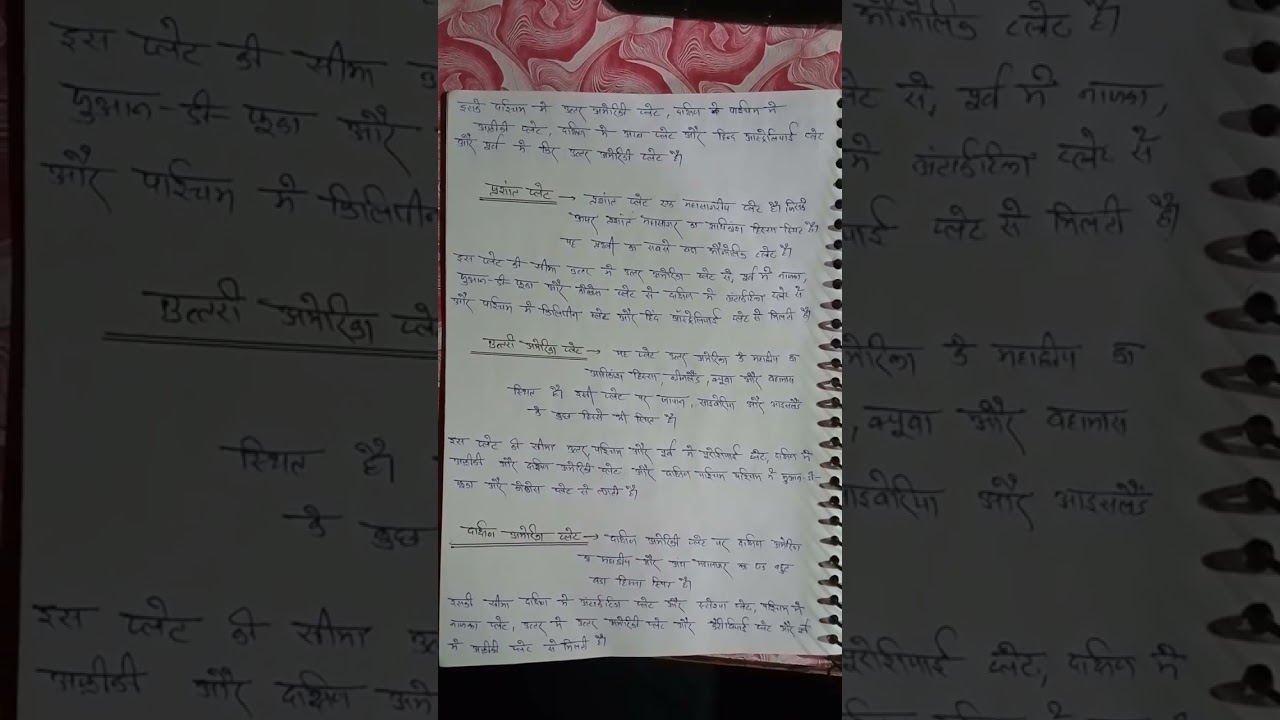 इसके पश्चिम मे उत्तर अमेरिकी प्लेट, दक्षिण पश्चिम मे
अफ्रीकी प्लेट, दक्षिण मे अरब प्लेट और हिन्द आस्ट्रेलियाई प्लेट
और पूर्व मे फिर उत्तर अमेरिकी प्लेट है।
प्रशांत प्लेट → प्रशांत प्लेट एक महासागरीय प्लेट है। जिसके
ऊपर प्रशांत महासागर का अधिकांश हिस्सा स्थित है।
यह पृथ्वी का सबसे बड़ा भौगोलिक प्लेट है।
इस प्लेट की सीमा उत्तर मे उत्तर अमेरिका प्लेट से, पूर्व मे नाजका,
जुआन-डी-फूका और कोकोस प्लेट से दक्षिण मे अंटार्कटिका प्लेट से
और पश्चिम मे फिलिपीन प्लेट और हिंद ऑस्ट्रेलियाई प्लेट से मिलती है।
उत्तरी अमेरिका प्लेट → यह प्लेट उत्तर अमेरिका के महाद्वीप का
अधिकांश हिस्सा, ग्रीनलैंड, क्यूबा और बहामास
स्थित है। इसी प्लेट पर जापान, साइबेरिया और आइसलैंड
के कुछ हिस्से भी स्थित है।
इस प्लेट की सीमा उत्तर, पश्चिम और पूर्व मे यूरेशियाई प्लेट, दक्षिण मे
अफ्रीकी और दक्षिण अमेरिकी प्लेट और दक्षिण पश्चिम पश्चिम मे जुआन-डी-
फूका और कोकोस प्लेट से लगती है।
दक्षिण अमेरिका प्लेट → दक्षिण अमेरिकी प्लेट पर दक्षिण अमेरिका
महाद्वीप और महासागर का एक बहुत
बड़ा हिस्सा स्थित है।
इसकी सीमा दक्षिण मे अंटार्कटिका प्लेट और स्कोशिया प्लेट, पश्चिम मे
नाजका प्लेट, उत्तर मे उत्तर अमेरिकी प्लेट और कैरीबियाई प्लेट और पूर्व
मे अफ्रीकी प्लेट से मिलती है।